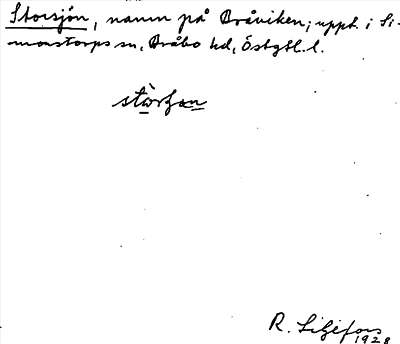 Storsjön, namn på Bråviken; uppt. i Si-
monstorps sn, Bråbo hd, Östgtl. l.
R. Liljefors
1928